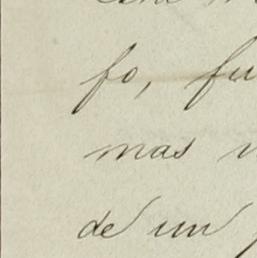 fo, fu
mas
de un